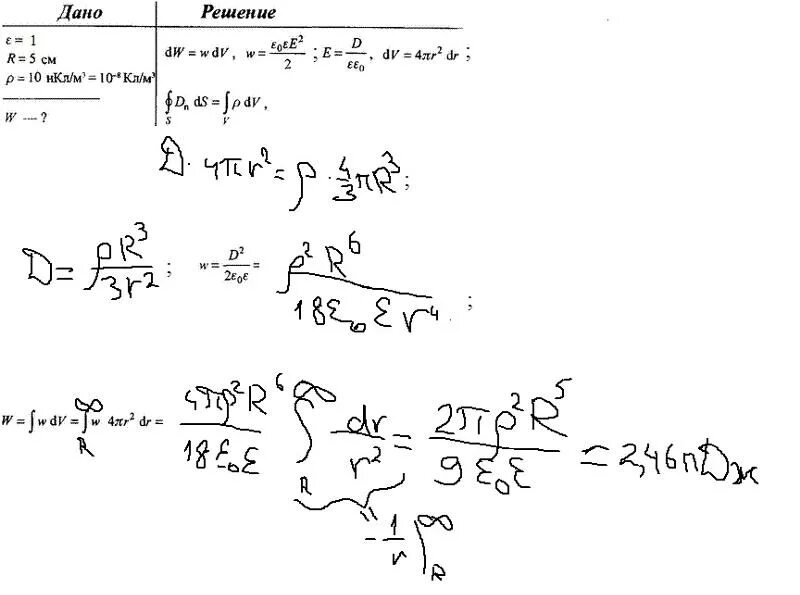 Дано Решение
ε = 1
R = 5 см
ρ = 10 нКл/м³ = 10⁻⁸ Кл/м³
W — ?
dW = w dV, w = ε₀εE²/2 ; E = D/εε₀, dV = 4πr² dr ;
∮_S Dₙ dS = ∫_V ρ dV,
D · 4πr² = ρ · 4/3 πR³ ;
D = ρR³/3r² ; w = D²/2ε₀ε = ρ²R⁶/18ε₀εr⁴ ;
W = ∫ w dV = ∫_R^∞ w 4πr² dr = 4πρ²R⁶/18ε₀ε ∫_R^∞ dr/r² = 2πρ²R⁵/9ε₀ε = 2,46 пДж
= -1/r |_R^∞